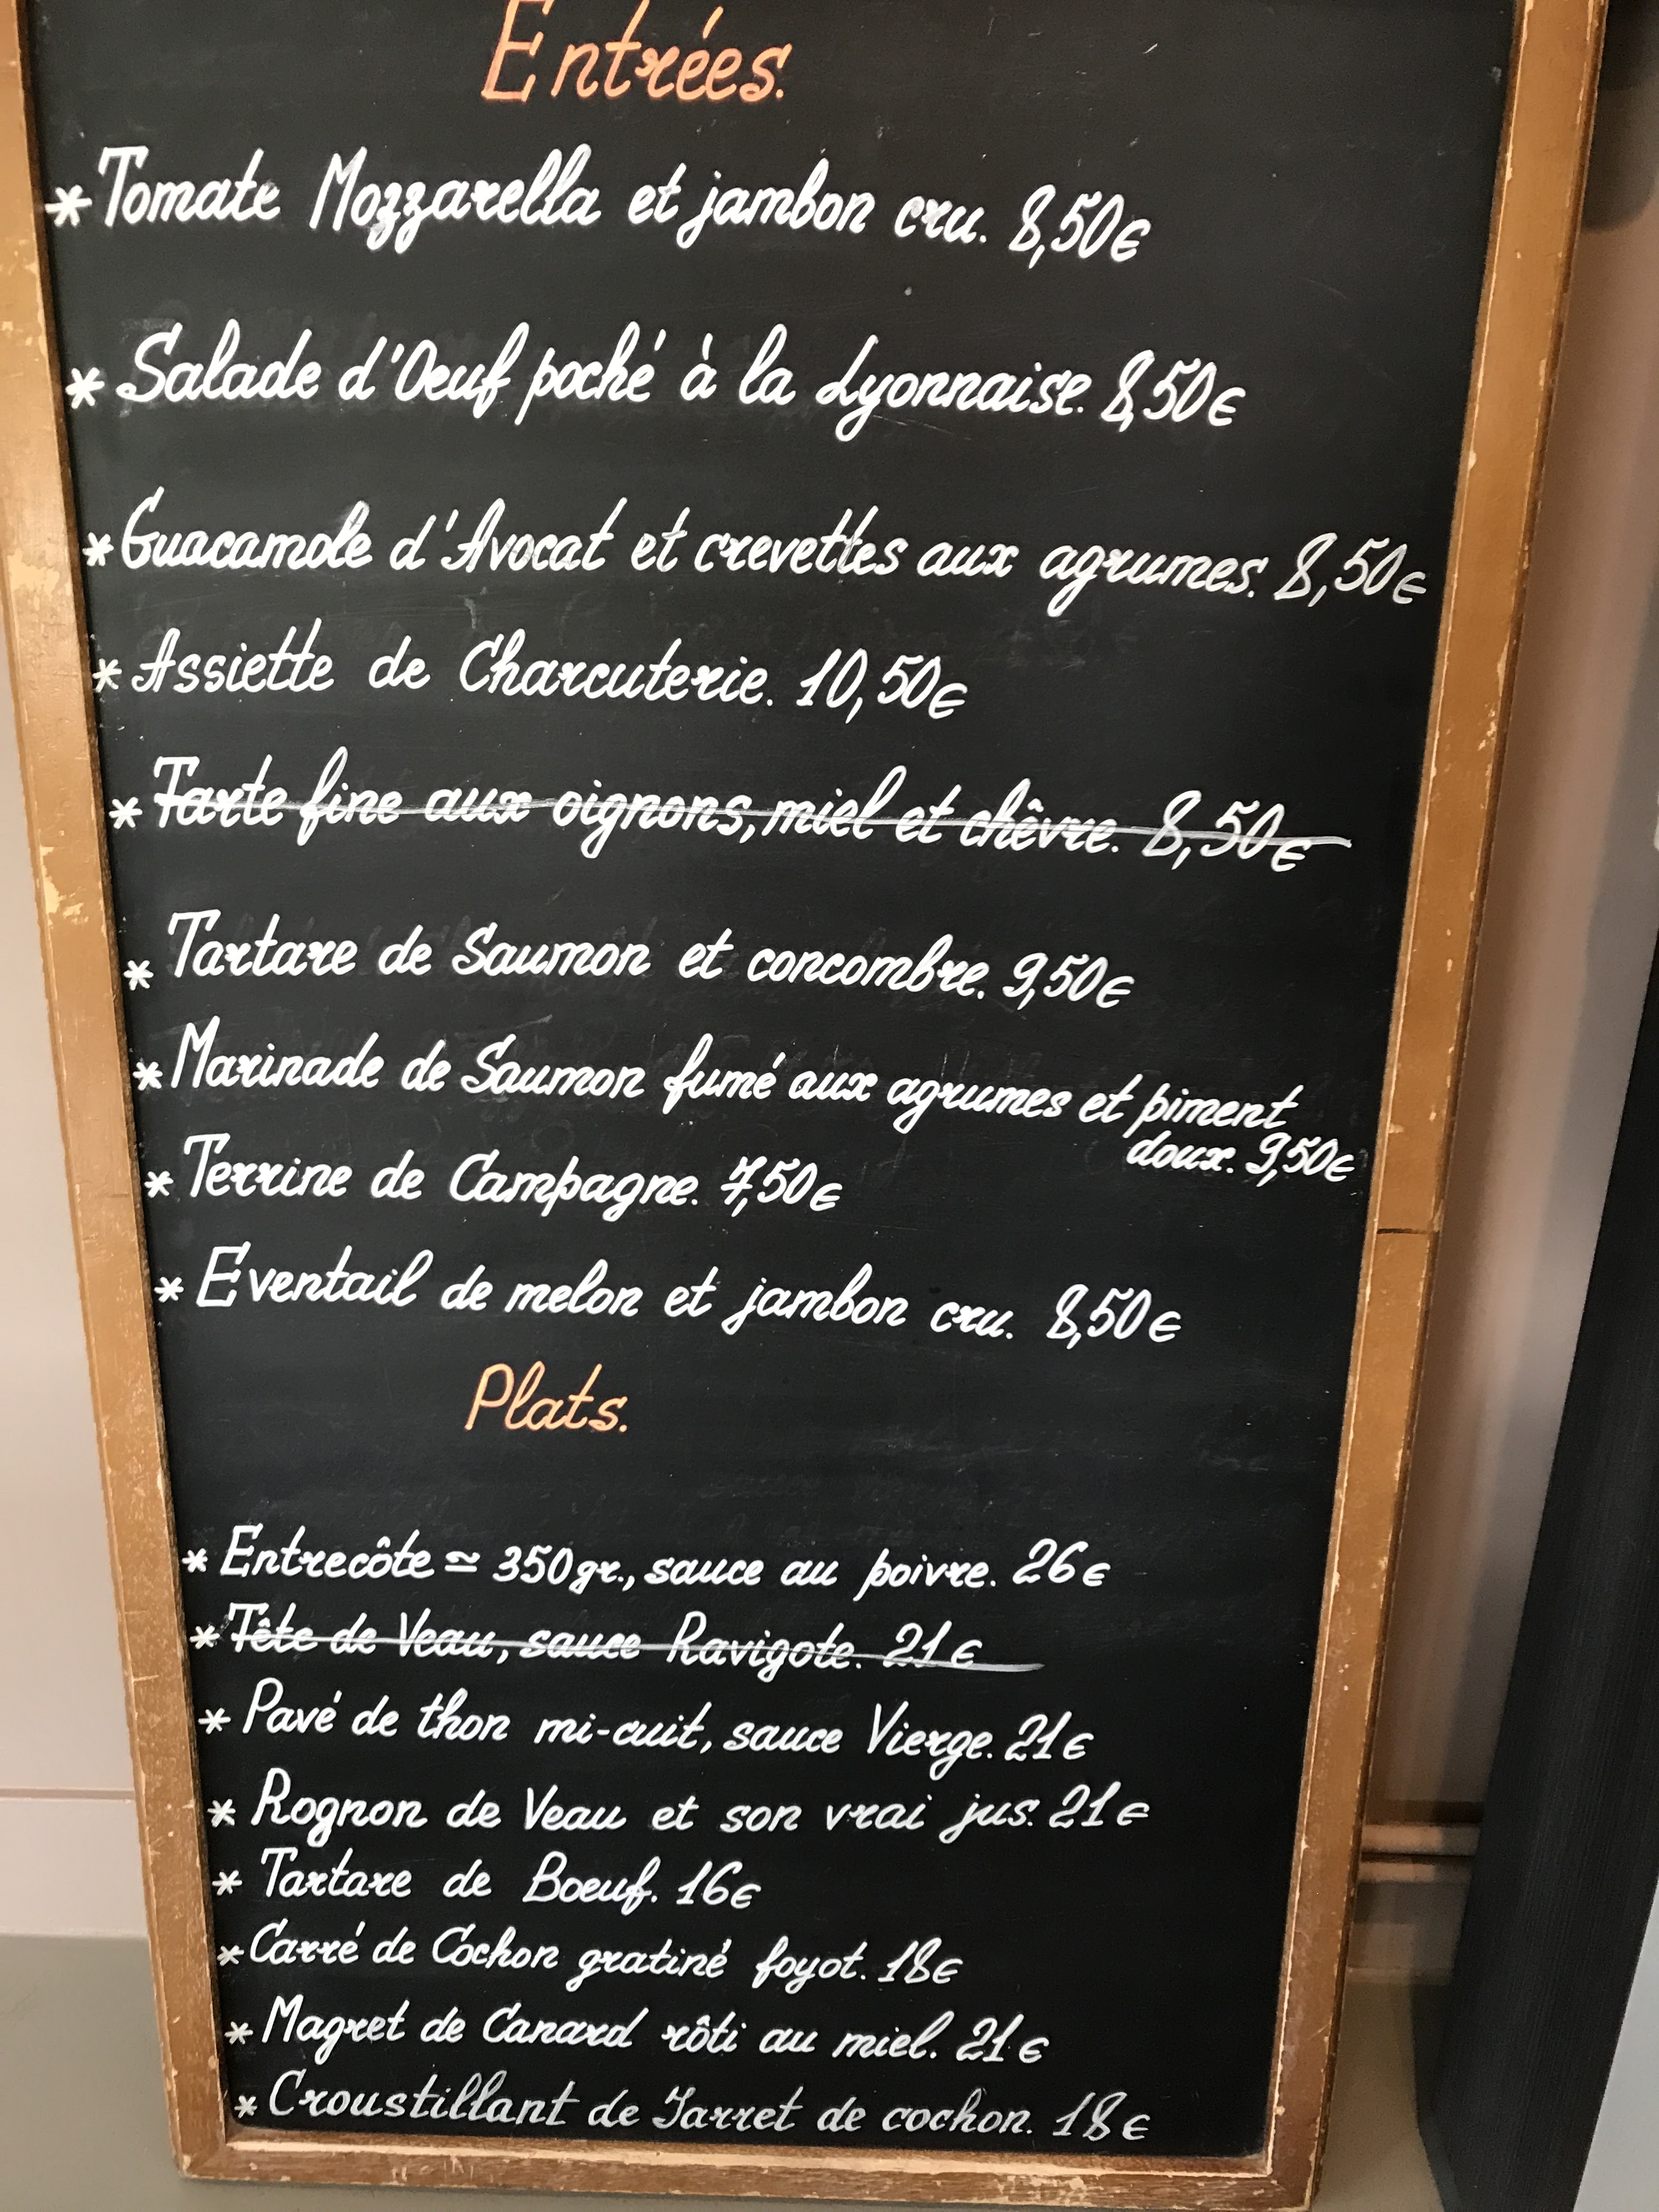 Entrées.
* Tomate Mozzarella et jambon cru. 8,50€
* Salade d'Oeuf poché à la Lyonnaise. 8,50€
* Guacamole d'Avocat et crevettes aux agrumes. 8,50€
* Assiette de Charcuterie. 10,50€
* Tarte fine aux oignons, miel et chêvre. 8,50€
* Tartare de Saumon et concombre. 9,50€
* Marinade de Saumon fumé aux agrumes et piment
doux. 9,50€
* Terrine de Campagne. 7,50€
* Eventail de melon et jambon cru. 8,50€
Plats.
* Entrecôte ≃ 350gr., sauce au poivre. 26€
* Tête de Veau, sauce Ravigote. 21€
* Pavé de thon mi-cuit, sauce Vierge. 21€
* Rognon de Veau et son vrai jus. 21€
* Tartare de Boeuf. 16€
* Carré de Cochon gratiné foyot. 18€
* Magret de Canard rôti au miel. 21€
* Croustillant de Jarret de cochon. 18€